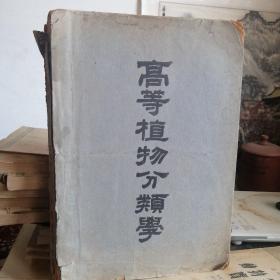 高等植物分類學